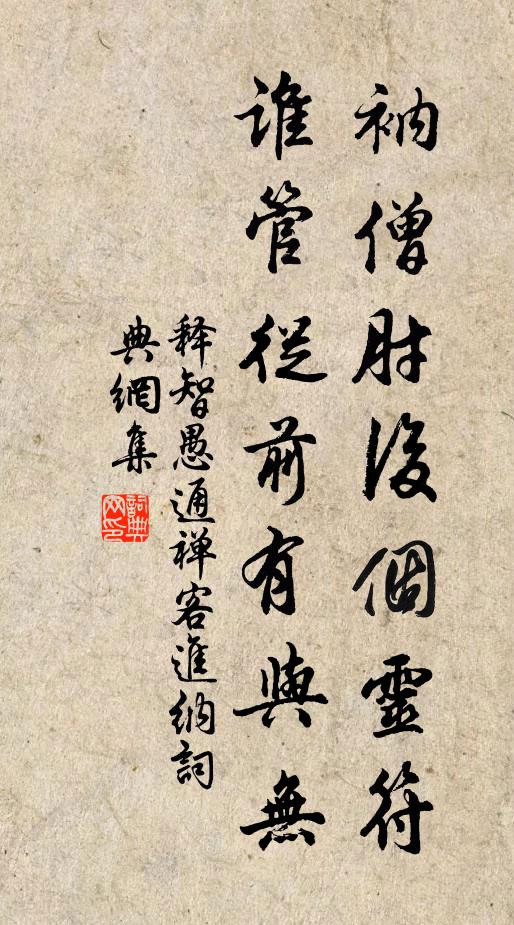 衲僧肘後個靈符
誰管從前有與無
释智愚通禅客進納詞
典網集
詞典網印